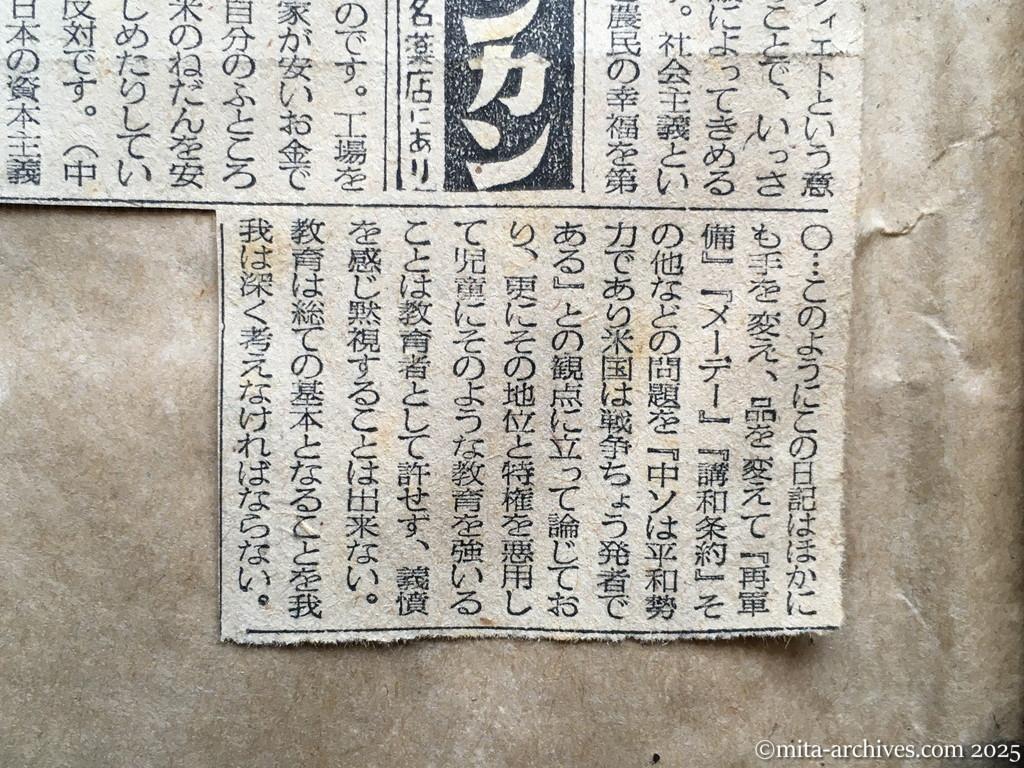 ィエトという意
ことで、いっさ
によってきめる
。社会主義とい
農民の幸福を第
ンカン
名薬店にあり
のです。工場を
家が安いお金で
自分のふところ
米のねだんを安
しめたりしてい
反対です。（中
日本の資本主義
〇…このようにこの日記はほかに
も手を変え、品を変えて『再軍
備』『メーデー』『講和条約』そ
の他などの問題を『中ソは平和勢
力であり米国は戦争ちょう発者で
ある』との観点に立って論じてお
り、更にその地位と特権を悪用し
て児童にそのような教育を強いる
ことは教育者として許せず、義憤
を感じ黙視することは出来ない。
教育は総ての基本となることを我
我は深く考えなければならない。
©mita-archives.com 2025